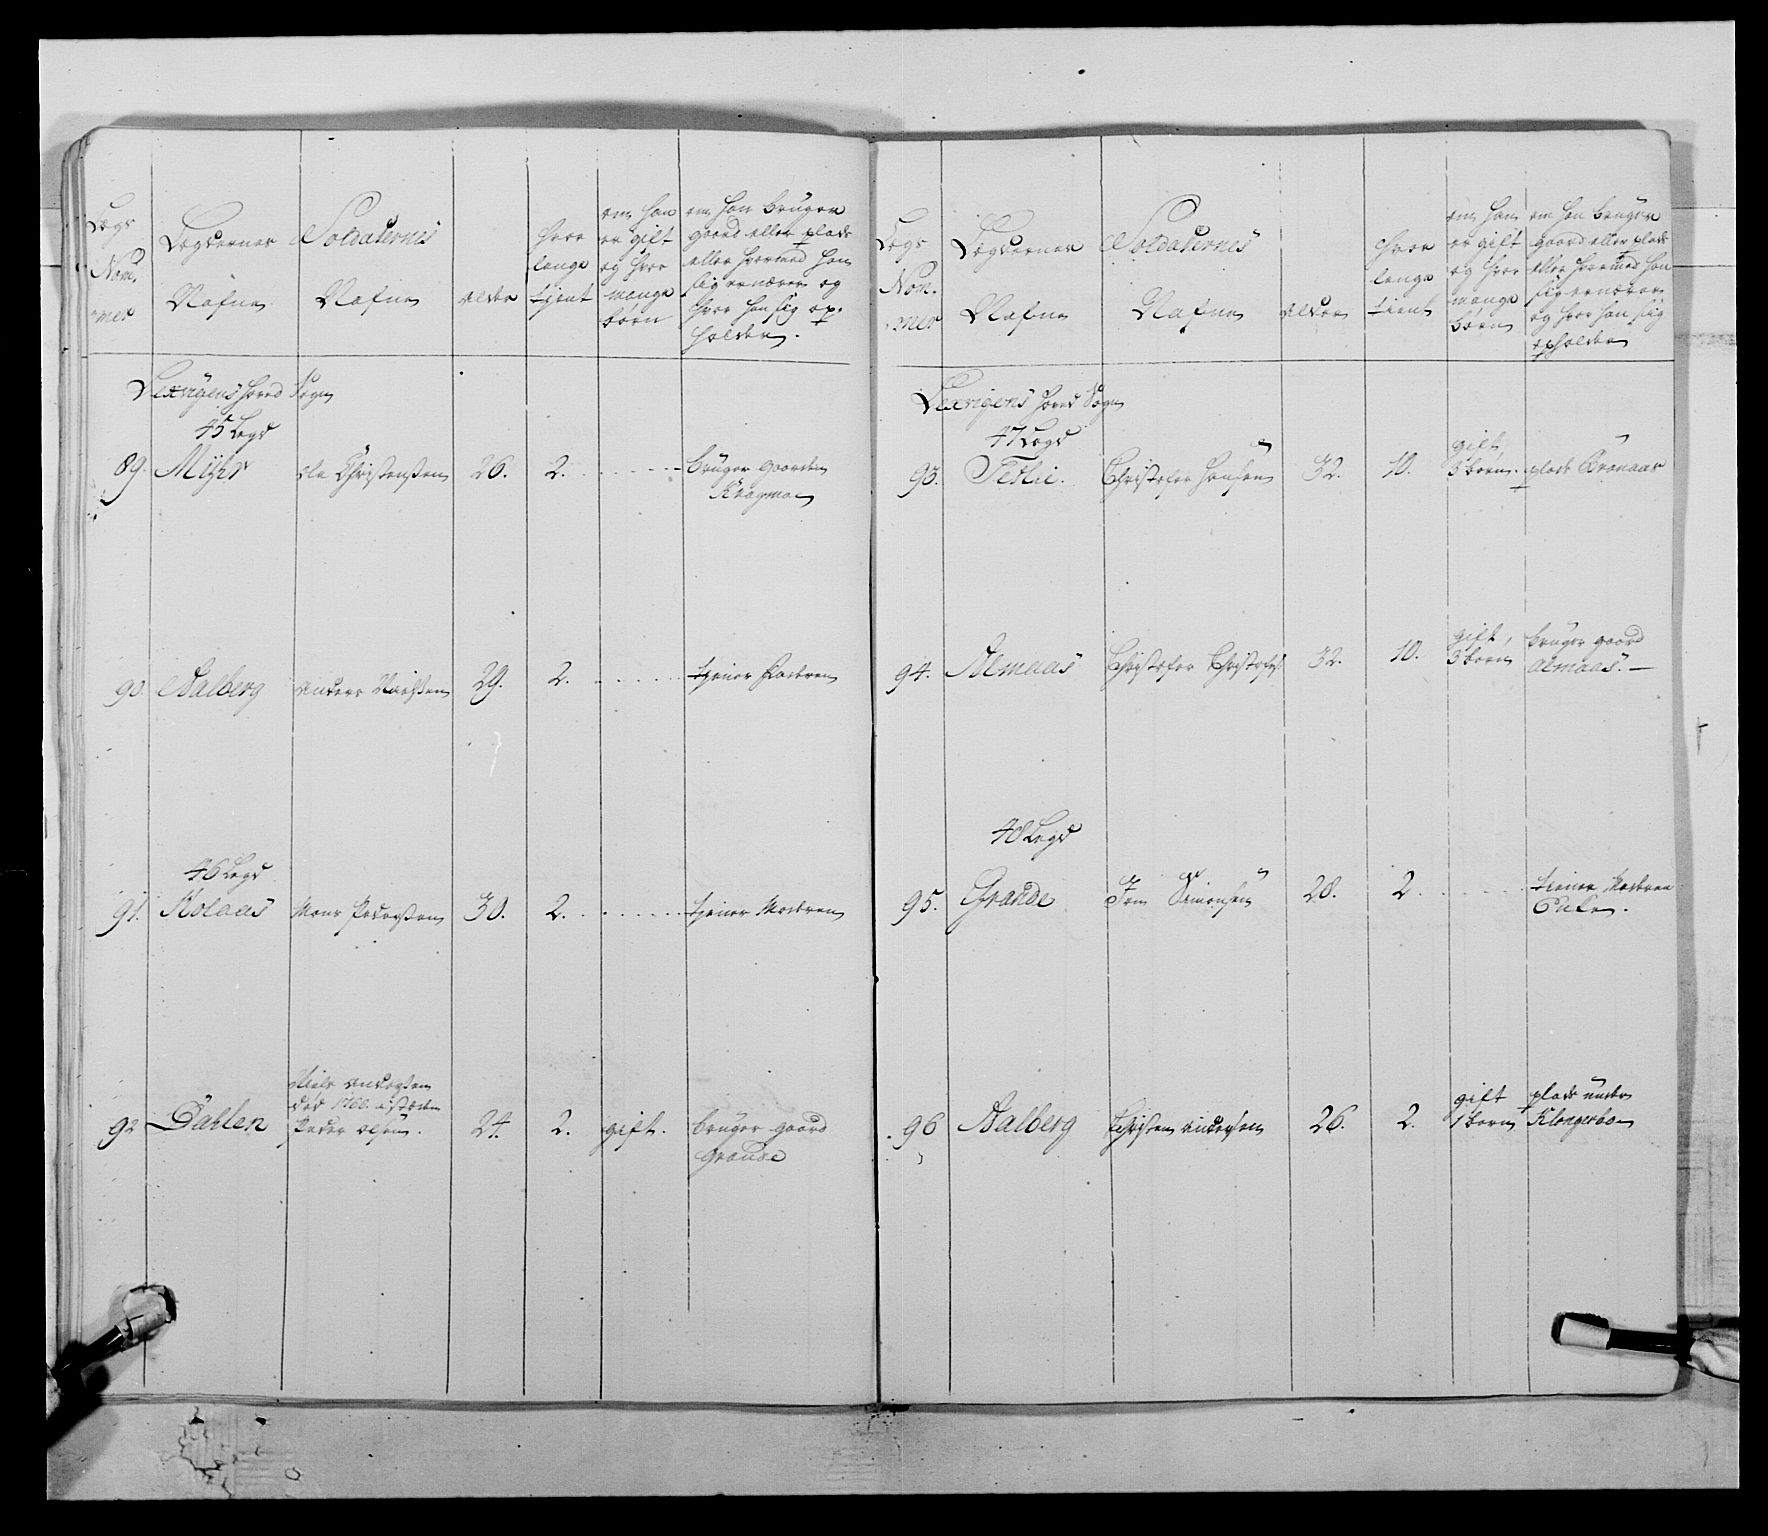 Legs
Nom,
mer
Legdernes
Nafne
Soldaternes
Nafne
Alder
hvor
lenge
tient
om han
er gift
og hvor
mange
børn
om han bruger
gaard eller plads
eller hvormed han
sig ernærer og
hvor han sig op-
holder.
Lexvigens hoved Sogn
45 Legd
89. Myhr Ole Christensen 26. 2. bruger gaarden
90. Aalberg Anders 29. 2. tjener
46 Legd
91. Kolaas Mons Pedersen 30. 2. tjener
92 Dahlen Niels Andersen
død 1766. isteden
Peder Olsen. 24. 2. gift. bruger gaard
Grande
Legs
Nom.
mer
Legdernes
Nafne
Soldaternes
Nafne
Alder
hvor
lenge
tient
om han
er gift
og hvor
mange
børn
om han bruger
gaard eller plads
eller hvormed han
sig ernærer
og hvor han sig
opholder
Lexvigens hoved Sogn
47 Legd
93. Tetlie. Christofer Hansen 32. 10. gift,
3 børn. plads
94. Almaas Christofer Christofers: 32. 10. gift,
3 børn bruger gaard
Almaas.
48 Legd
95. Grande Jon Simonsen 28. 2. tiener
96 Aalberg Christen Andersen 26. 2. gift
1 barn plads under